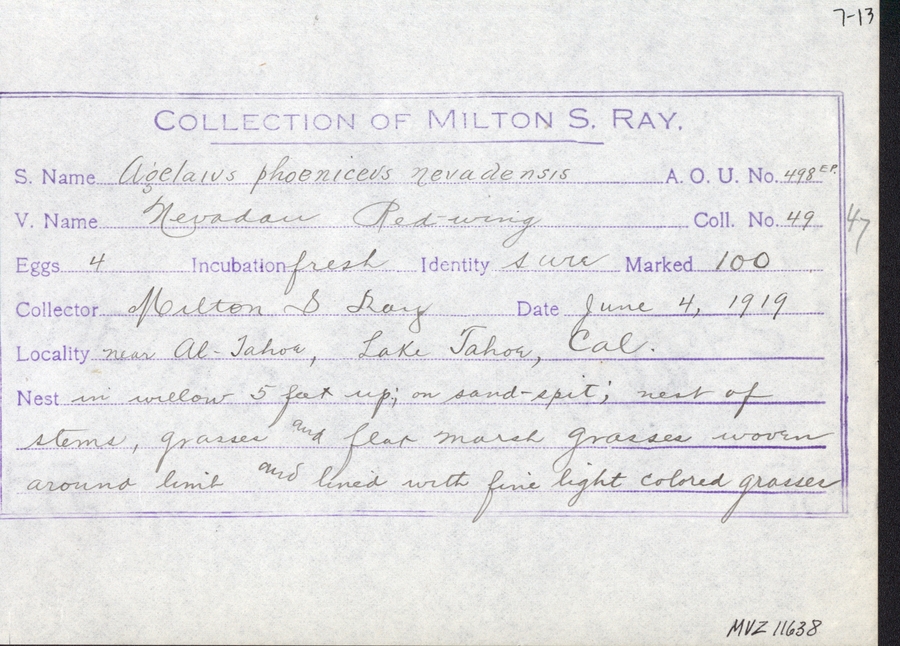 7-13
COLLECTION OF MILTON S. RAY.
S. Name Agelaius phoeniceus nevadensis A. O. U. No. 498 E.P.
V. Name Nevadan Red-wing Coll. No. 49 47
Eggs 4 Incubation fresh Identity sure Marked 100
Collector Milton S Ray Date June 4, 1919
Locality near Al-Tahoe, Lake Tahoe, Cal.
Nest in willow 5 feet up; on sand-spit; nest of
stems, grasses and flat marsh grasses woven
around limb and lined with fine light colored grasses
MVZ 11638